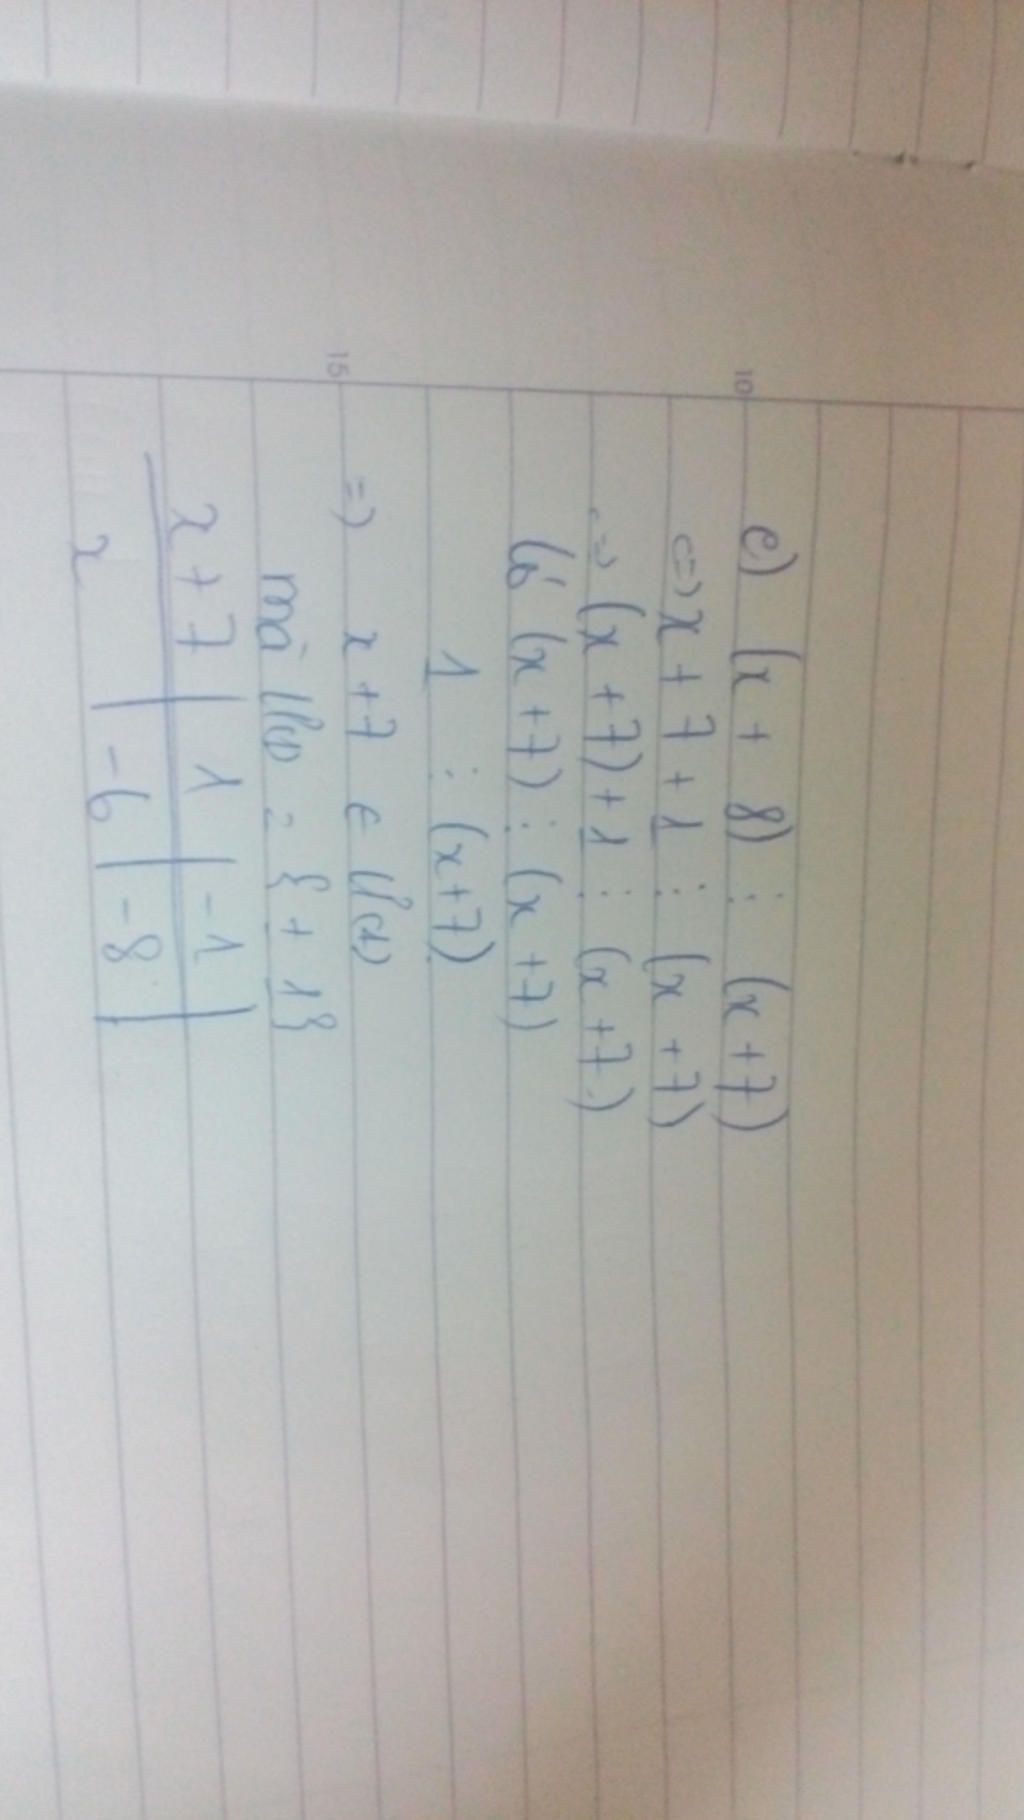 e) (x + 8) ⋮ (x+7)
<=> x + 7 + 1 ⋮ (x +7)
=> (x +7) + 1 ⋮ (x +7)
Có (x +7) ⋮ (x +7)
1 ⋮ (x+7)
=> x +7 ∈ Ư(1)
mà Ư(1) = {± 1}
x + 7 | 1 | -1
x | -6 | -8
10
15